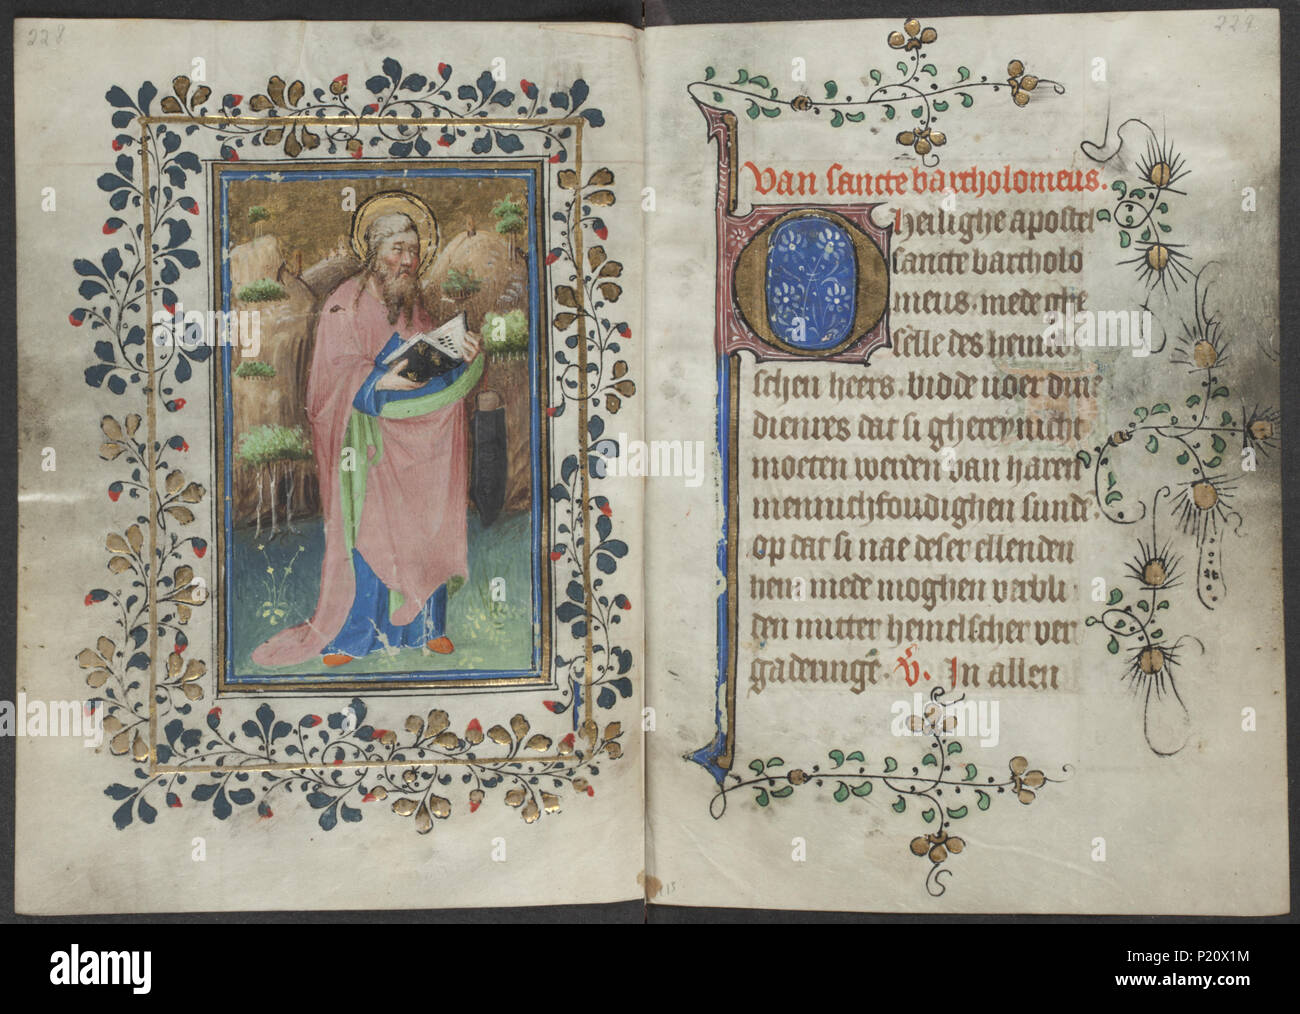 228
229
Van sancte bartholomeus.
O heilighe apostel
sancte bartholo
meus. mede ghe
selle des hemel
schen heers. bidde voer dine
dienres dat si gherey nicht
moeten werden van haren
mennichfoudighen sunden
op dat si nae deser ellenden
hem mede moghen verbli
den mitter hemelscher ver
gaderinge. V. In allen
alamy
P20X1M
www.alamy.com